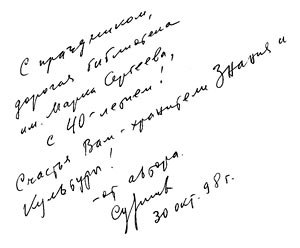 С праздником,
дорогая библиотека
им. Марка Сергеева,
с 40-летием!
Счастья Вам - хранители Знания и
Культуры!
- от автора.
30 окт. 98 г.